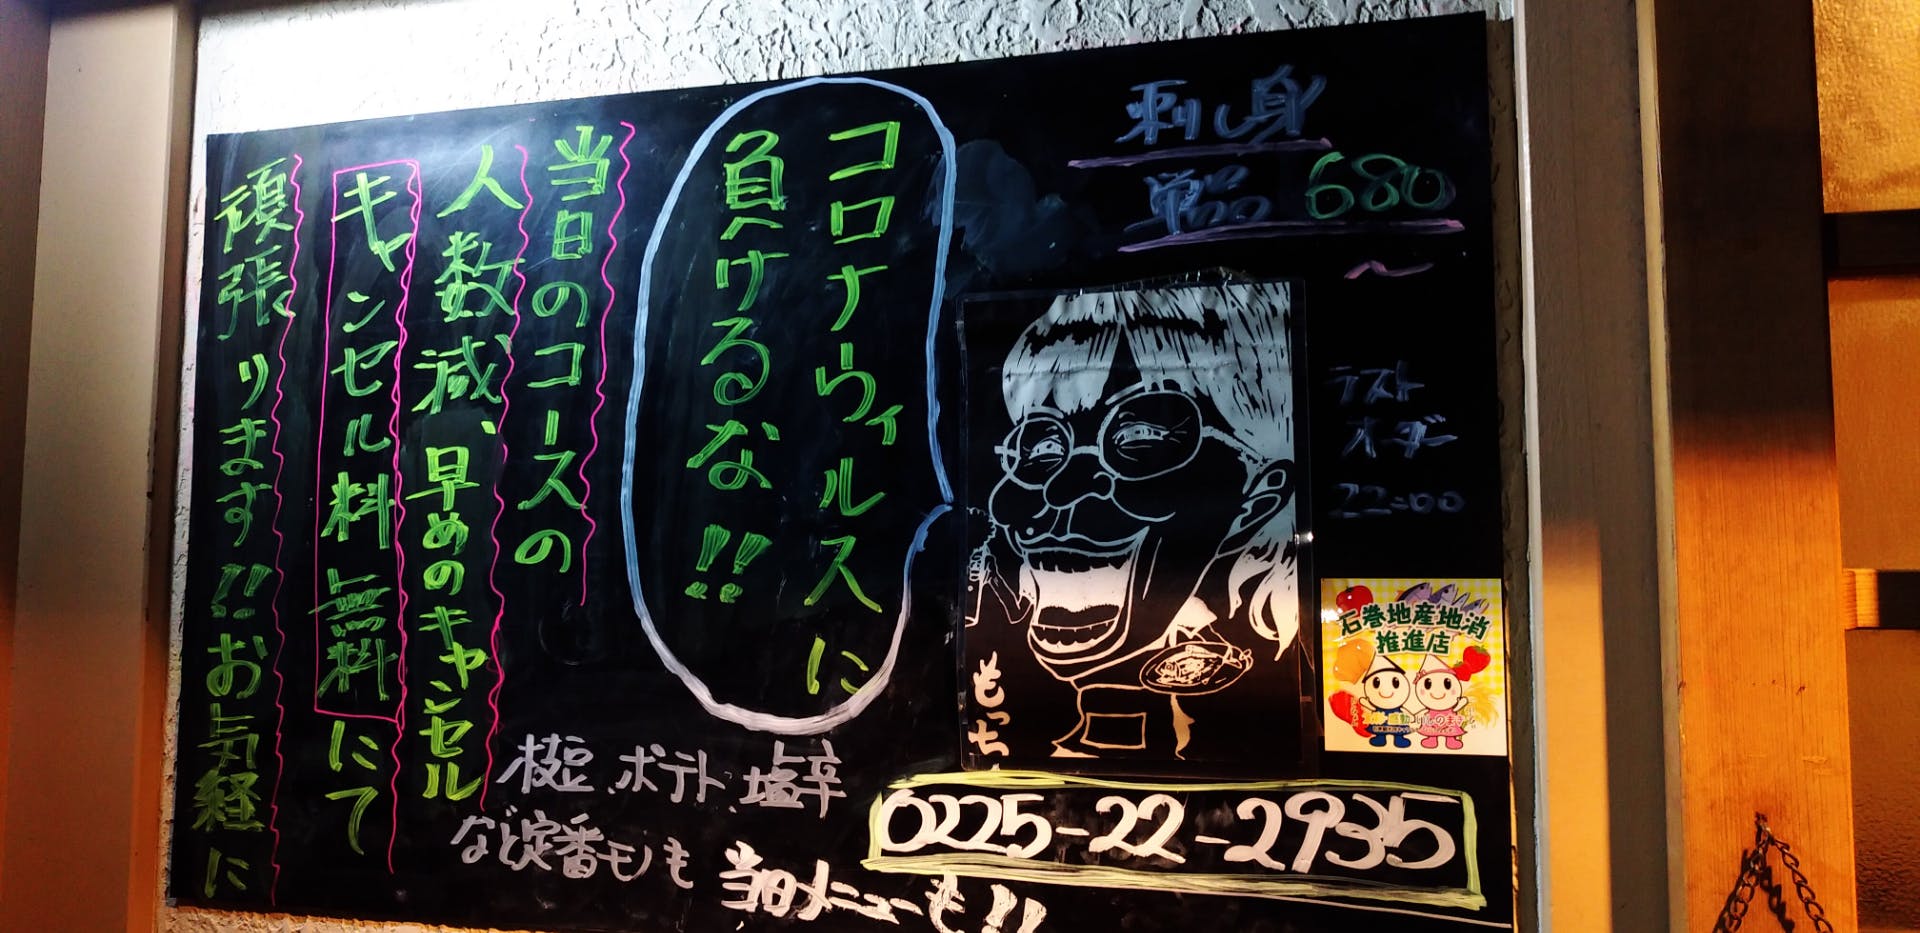 刺し身
単品 680
〜
ラスト
オーダー
22:00
コロナウィルスに
負けるな!!
当日のコースの
人数減、早めのキャンセル
キャンセル料無料にて
頑張ります!!お気軽に
もっち
石巻地産地消
推進店
枝豆、ポテト、塩辛
など定番モノも
当日メニューも!!
0225-22-2935